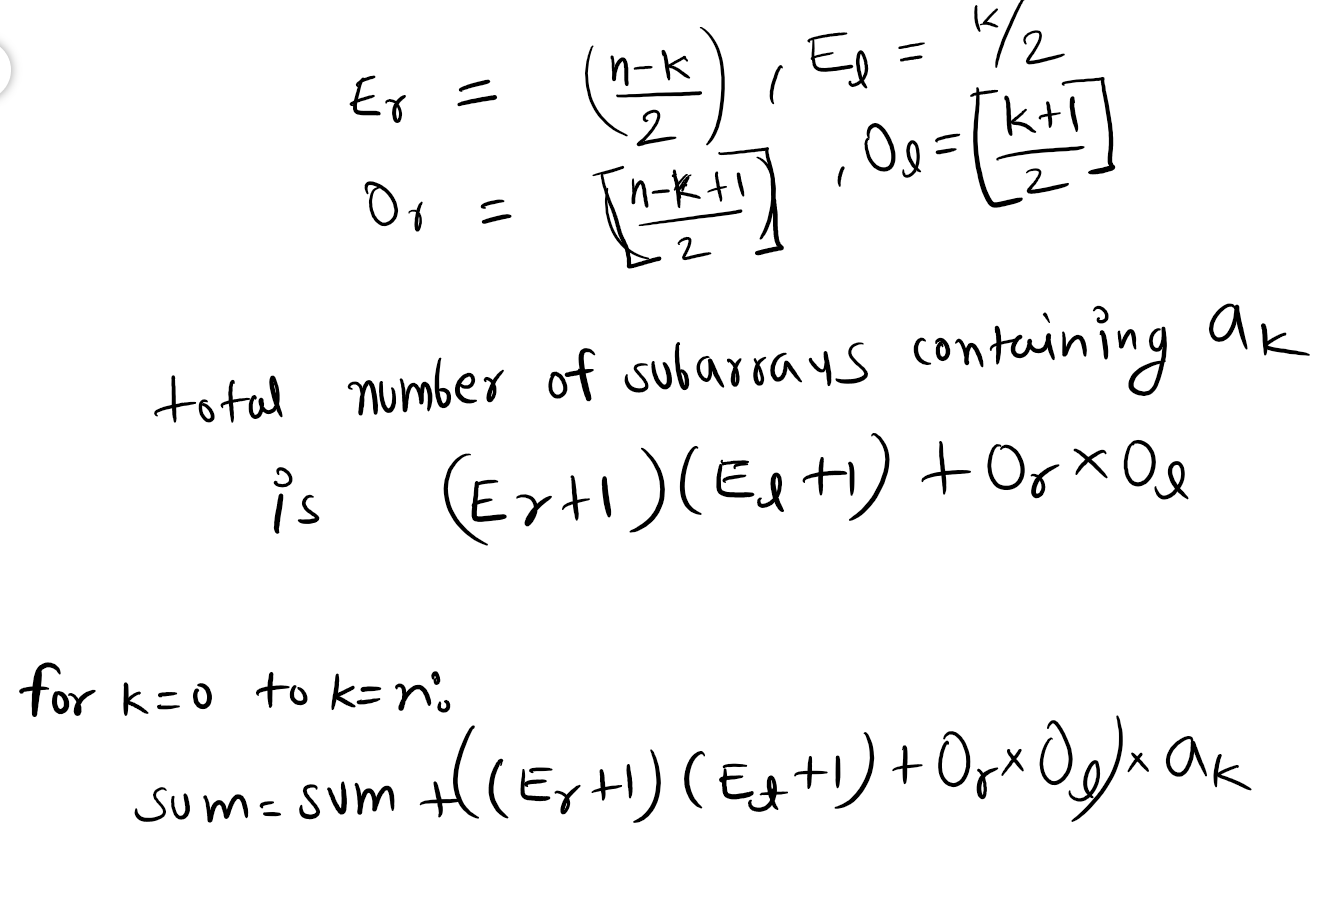 Er = (n-k/2), El = k/2
Or = [n-k+1/2], Ol = [k+1/2]
total number of subarrays containing ak
is (Er+1)(El+1) + Or×Ol
for k=0 to k=n:
sum = sum + ((Er+1)(El+1) + Or×Ol)×ak